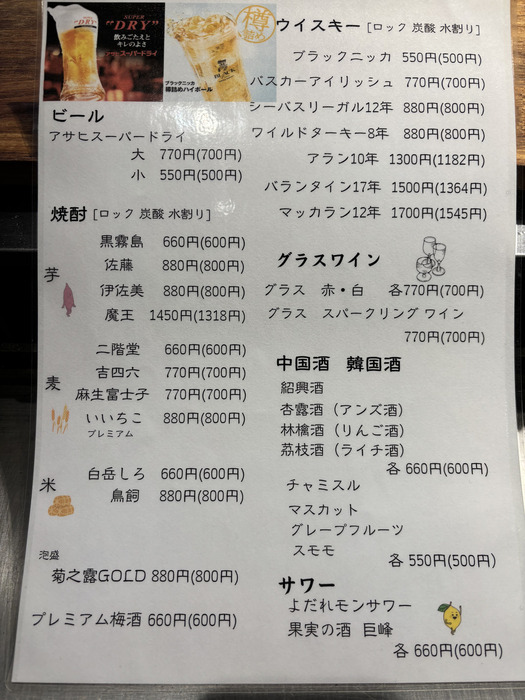 SUPER
"DRY"
飲みごたえと
キレのよさ
スーパードライ
樽
ブラックニッカ
樽詰めハイボール
ビール
アサヒスーパードライ
大 770円(700円)
小 550円(500円)
焼酎 [ロック 炭酸 水割り]
芋
黒霧島 660円(600円)
佐藤 880円(800円)
伊佐美 880円(800円)
魔王 1450円(1318円)
麦
二階堂 660円(600円)
吉四六 770円(700円)
麻生富士子 770円(700円)
いいちこ 880円(800円)
プレミアム
米
白岳しろ 660円(600円)
鳥飼 880円(800円)
泡盛
菊之露GOLD 880円(800円)
プレミアム梅酒 660円(600円)
ウイスキー [ロック 炭酸 水割り]
ブラックニッカ 550円(500円)
バスカーアイリッシュ 770円(700円)
シーバスリーガル12年 880円(800円)
ワイルドターキー8年 880円(800円)
アラン10年 1300円(1182円)
バランタイン17年 1500円(1364円)
マッカラン12年 1700円(1545円)
グラスワイン
グラス 赤・白 各770円(700円)
グラス スパークリング ワイン
770円(700円)
中国酒 韓国酒
紹興酒
杏露酒(アンズ酒)
林檎酒(りんご酒)
茘枝酒(ライチ酒)
各 660円(600円)
チャミスル
マスカット
グレープフルーツ
スモモ
各 550円(500円)
サワー
よだれモンサワー
果実の酒 巨峰
各 660円(600円)